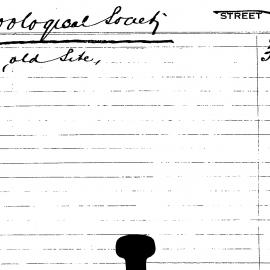 oological Society
STREET
old Site,